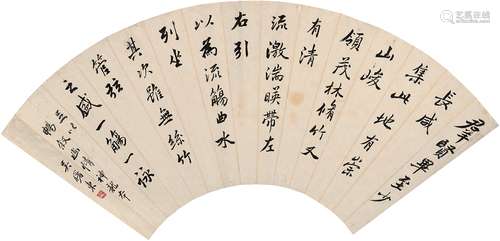 羣賢畢至少
長咸
集此地有崇
山峻
領茂林脩竹又
有清
流激湍暎帶左
右引
以為流觴曲水
列坐
其次雖無絲竹
管弦
之盛一觴一詠
亦足以
暢敘幽情 神龍本